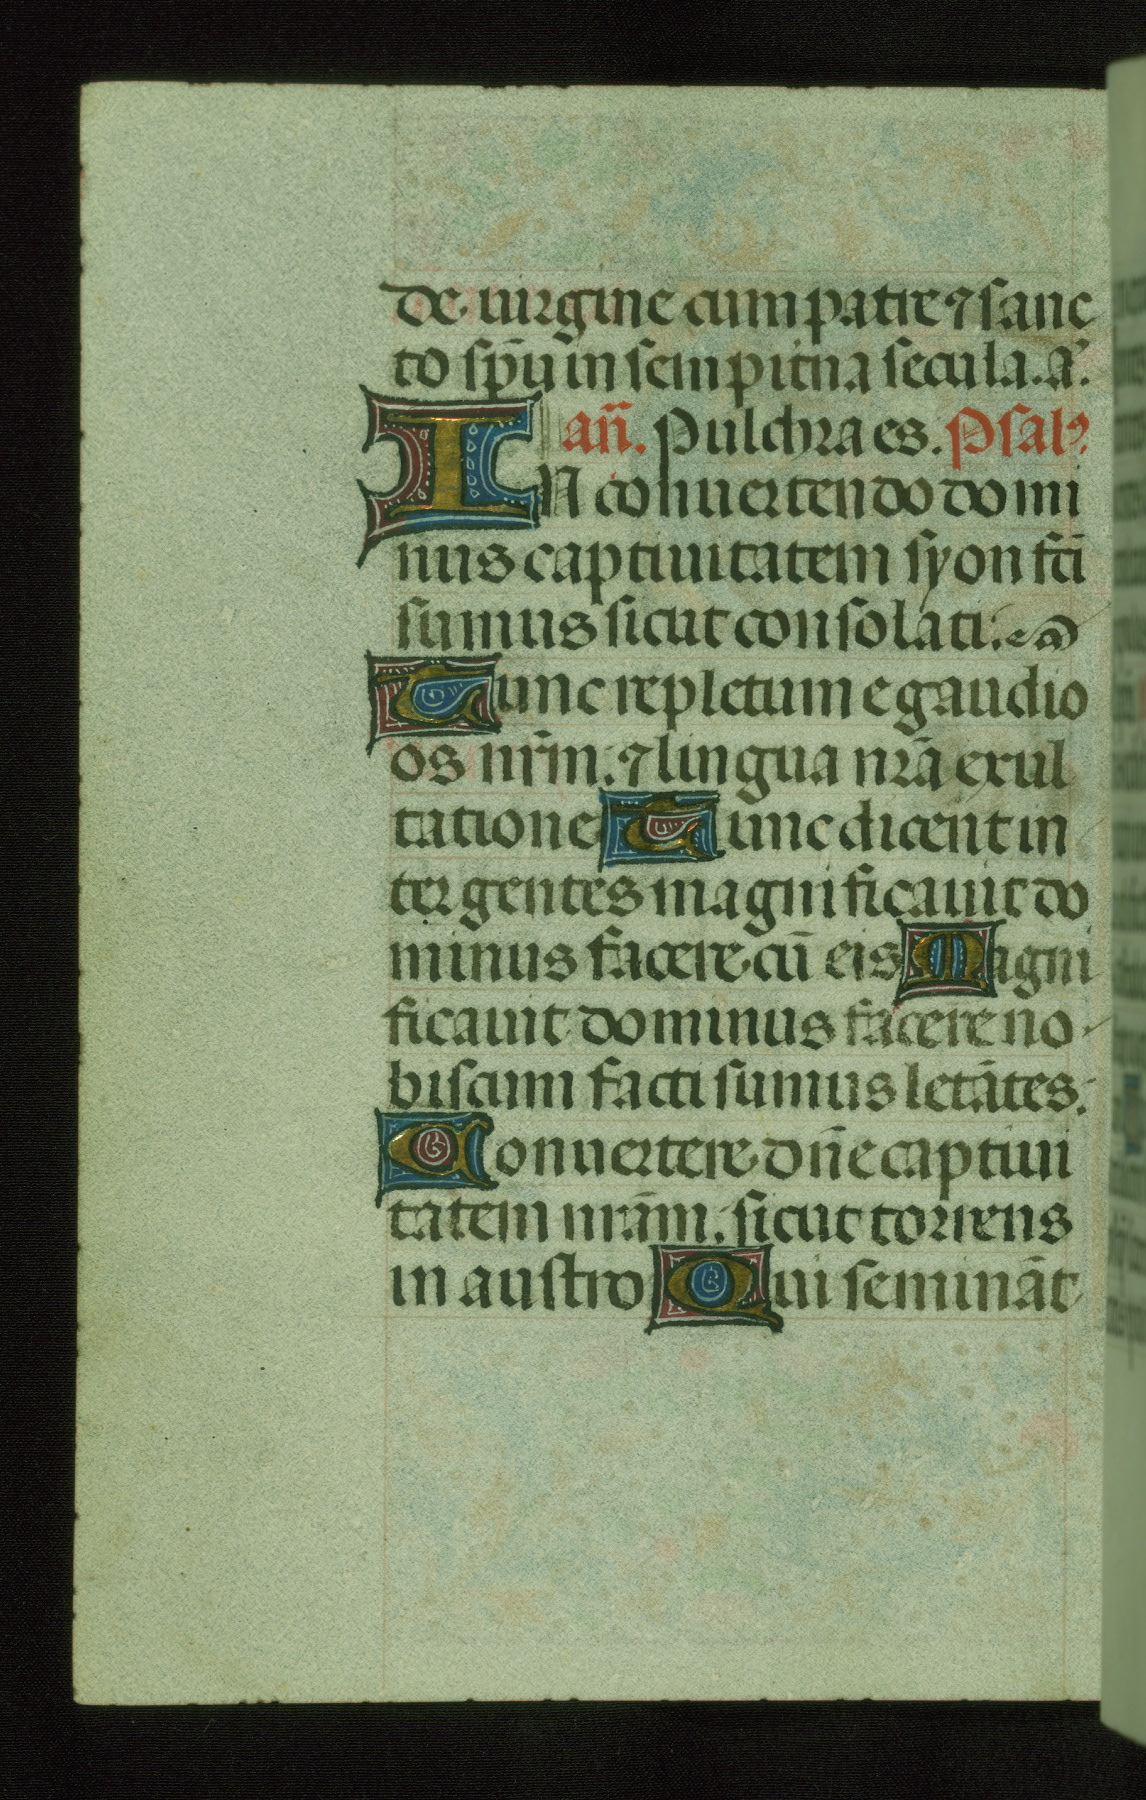 de uirgine cum patre ⁊ sanc
to sp̄u in sempit̄na secula. A᷑.
an̄. Pulchra es. Psalꝰ
IN conuertendo domi
nus captiuitatem syon fc̄i
sumus sicut consolati.
Tunc repletum e gaudio
os nr̄m: ⁊ lingua nr̄a exul
tatione Tunc dicent in
ter gentes magnificauit do
minus facere cū eis Magni
ficauit dominus facere no
biscum facti sumus letātes.
Conuertere dn̄e captiui
tatem nr̄am. sicut torrens
in austro Qui semināt